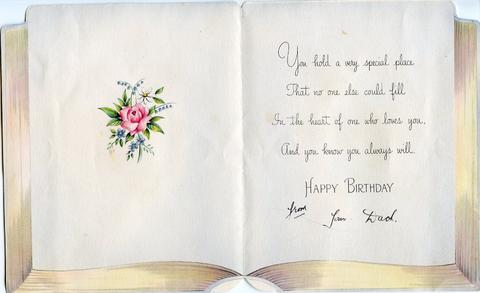 You hold a very special place
That no one else could fill
In the heart of one who loves you,
And you know you always will.
HAPPY BIRTHDAY
from Dad.